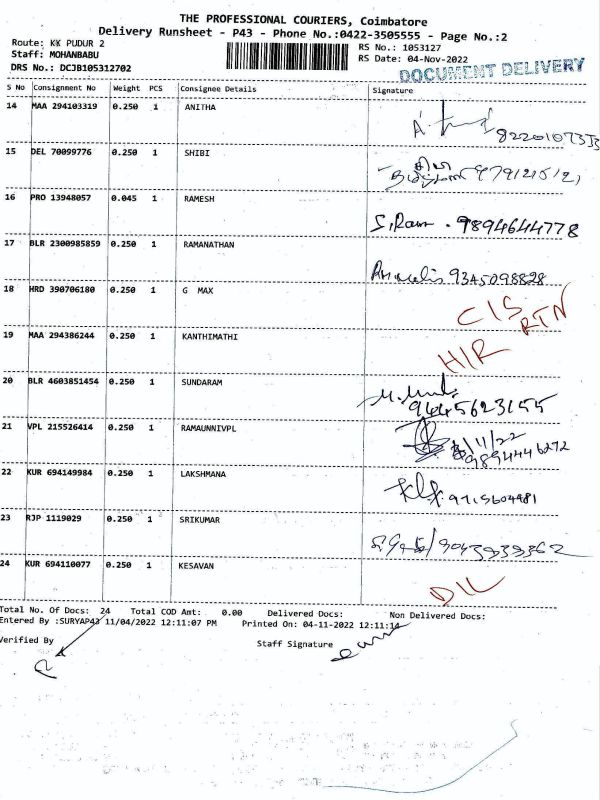 THE PROFESSIONAL COURIERS, Coimbatore
Delivery Runsheet - P43 - Phone No.:0422-3505555 - Page No.:2
Route: KK PUDUR 2
Staff: MOHANBABU
DRS No.: DCJB105312702
RS No.: 1053127
RS Date: 04-Nov-2022
DOCUMENT DELIVERY
S No Consignment No Weight PCS Consignee Details Signature
14 MAA 294103319 0.250 1 ANITHA
15 DEL 70099776 0.250 1 SHIBI
16 PRO 13948057 0.045 1 RAMESH S.Ram . 9894644778
17 BLR 2300985859 0.250 1 RAMANATHAN 9345098828
18 HRD 390706180 0.250 1 G MAX C/S RTN
19 MAA 294386244 0.250 1 KANTHIMATHI H/R
20 BLR 4603851454 0.250 1 SUNDARAM 9445623155
21 VPL 215526414 0.250 1 RAMAUNNIVPL
22 KUR 694149984 0.250 1 LAKSHMANA 9715604481
23 RJP 1119029 0.250 1 SRIKUMAR
24 KUR 694110077 0.250 1 KESAVAN D/L
Total No. Of Docs: 24 Total COD Amt: 0.00 Delivered Docs: Non Delivered Docs:
Entered By :SURYAP43 11/04/2022 12:11:07 PM Printed On: 04-11-2022 12:11:14
Verified By Staff Signature